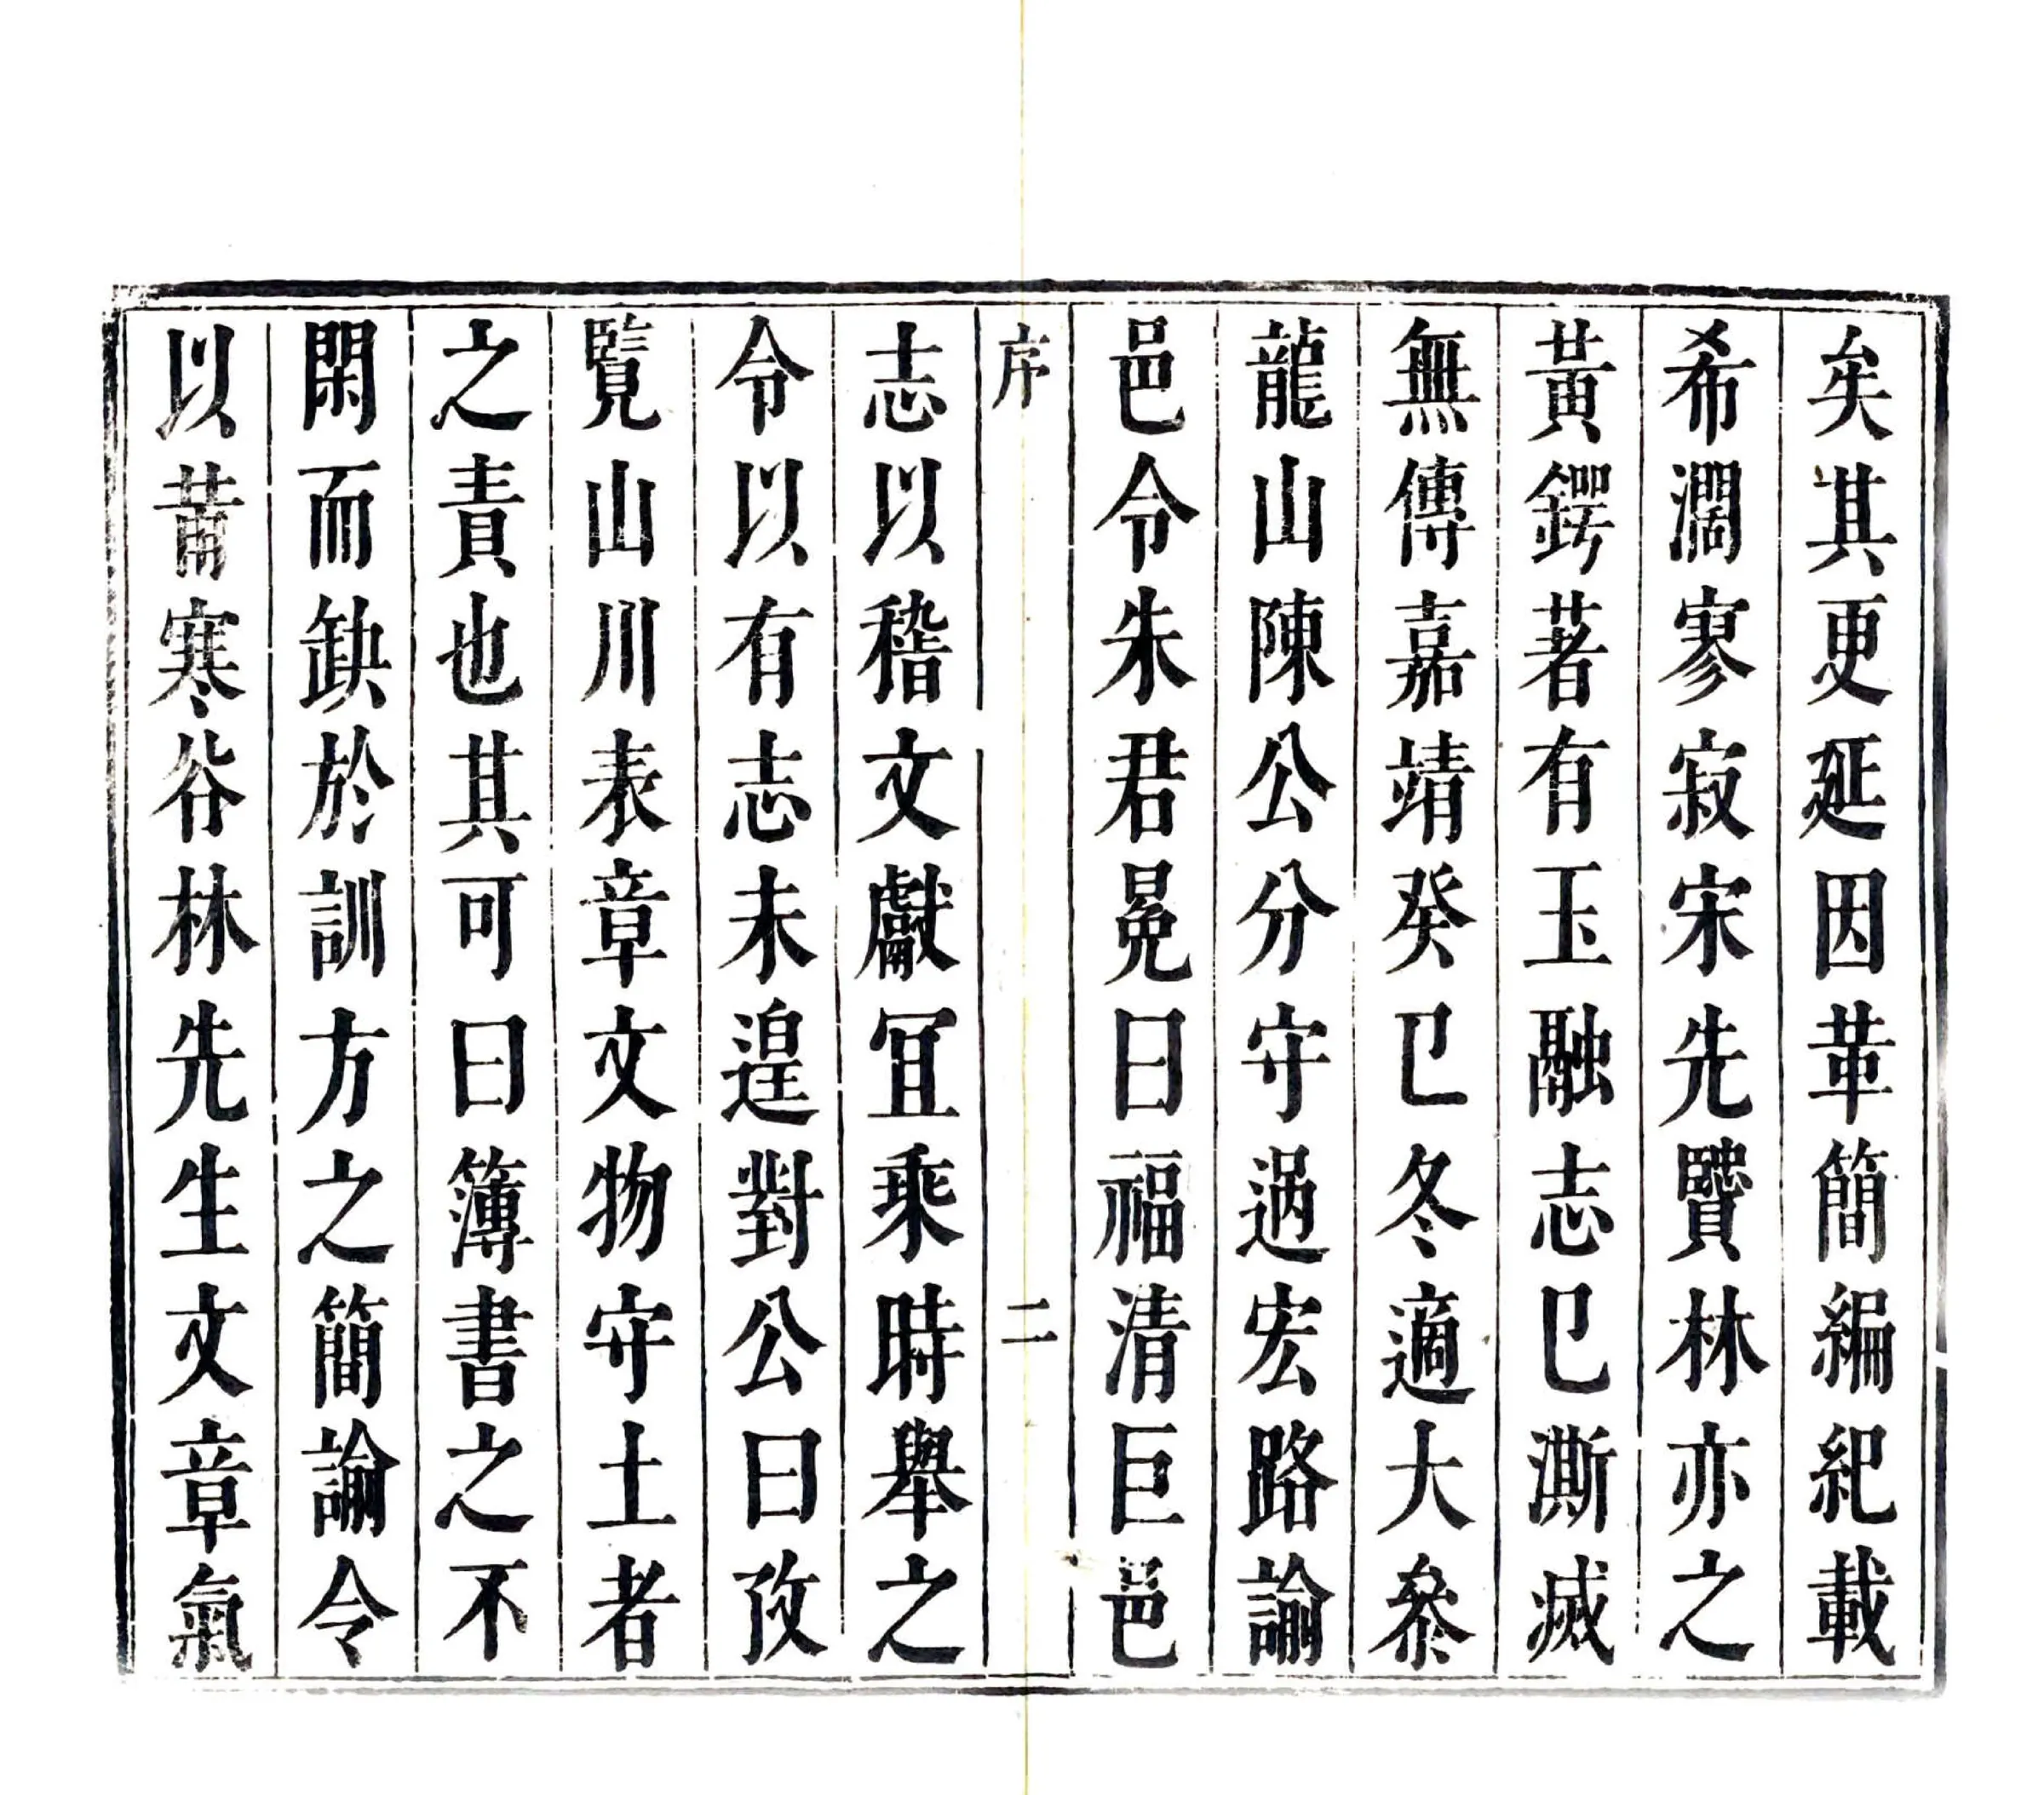 矣其更延因革簡編紀載
希濶寥寂宋先賢林亦之
黃鍔著有玉融志已澌滅
無傳嘉靖癸巳冬適大叅
龍山陳公分守過宏路諭
邑令朱君冕曰福清巨邑
序 二
志以稽文獻冝乘時舉之
令以有志未遑對公曰攷
覽山川表章文物守土者
之責也其可曰簿書之不
閑而缺於訓方之簡諭令
以莆寒谷林先生文章氣